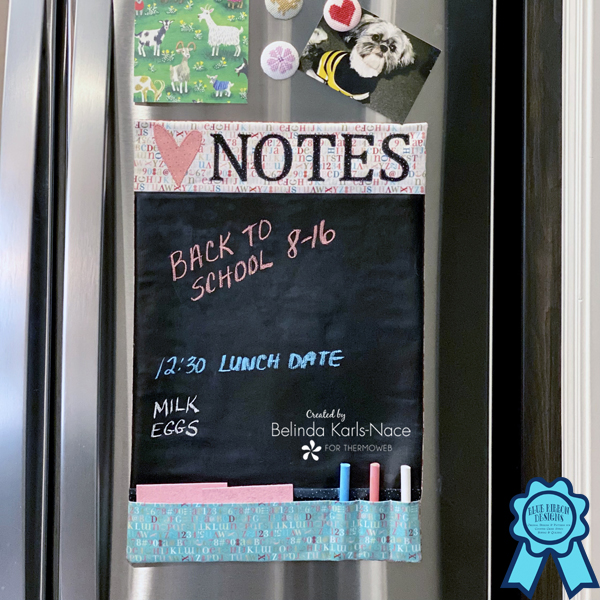 NOTES
BACK TO
SCHOOL 8-16
12:30 LUNCH DATE
MILK
EGGS
Created by
Belinda Karls-Nace
FOR THERMOWEB
BLUE RIBBON
DESIGNS